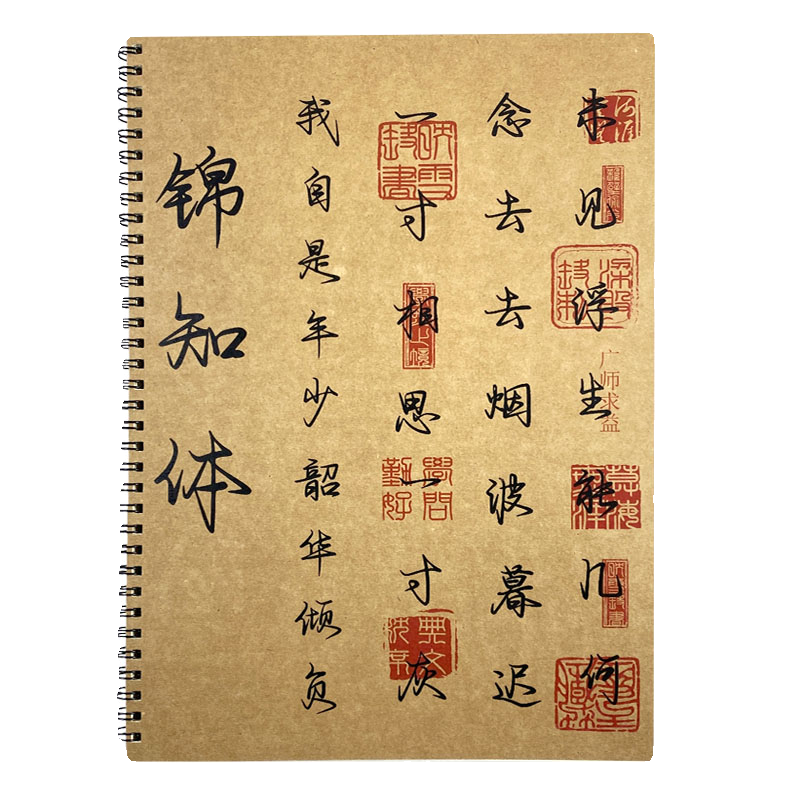 未见浮生能几何
念去去烟波暮迟
一寸相思一寸灰
我自是年少韶华倾负
锦知体
广师求益
勤學
好問